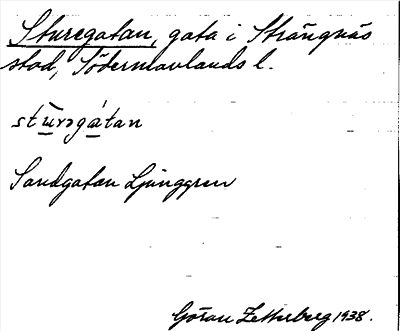 Sturegatan, gata i Strängnäs
stad, Södermanlands l.
stùrəgátan
Sandgatan Ljunggren
Göran Zetterberg 1938.